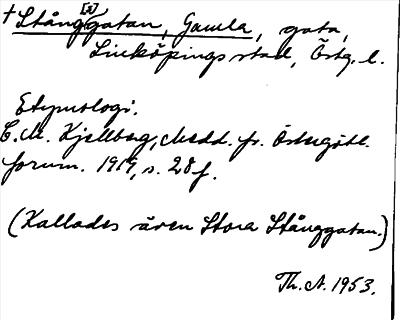 † Stång[s]gatan, Gamla, gata,
Linköpings stad, Östg. l.
Etymologi.
C. M. Kjellberg, Medd. fr. Östergötl.
fornm. 1919, s. 28 f.
(Kallades även Stora Stånggatan.)
Th. A. 1953.